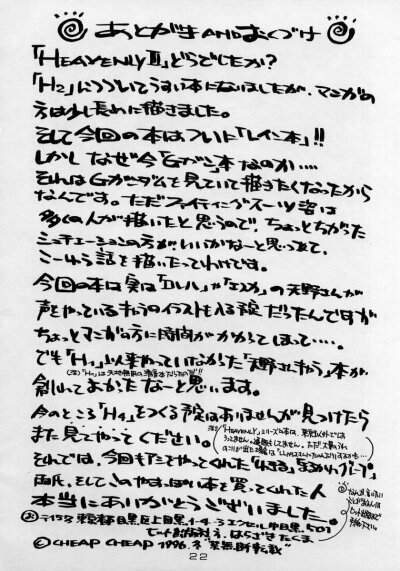 あとがき AND おくづけ
「HEAVENLYⅢ」どうでしたか?
「H2」につづいてうすい本になりましたが、マンガの
方は少し長めに描きました。
そして今回の本はついに「レイン本」!!
しかし なぜ今「Gガン」本 なのか‥‥
それはGガンダムを見ていて描きたくなったから
なんです。ただファイティングスーツ姿は
多くの人が描いたと思うので、ちょっとちがった
シチュエーションの方が、いいかなーと思って、
こーゆう話を描いたってわけです。
今回の本は実は の天野さんが
声をやっているキャラのイラストも入る予定だったんですが
ちょっとマンガの方に時間がかかってしまって‥‥。
でも「H1」以来やっていなかった「天野さんキャラ」本が
創れてよかったなーと思います。
今のところ「H4」をつくる予定はありませんが見つけたら
また見てやってください。
それでは、今回もアシをやってくれた
両氏、そしてこのやすっぽい本を買ってくれた人
本当にありがとうございました。
東京都目黒区上目黒1-4-3エクセル中目黒501
はらざきたくま
© CHEAP CHEAP 1996. 冬 禁無断転載
22